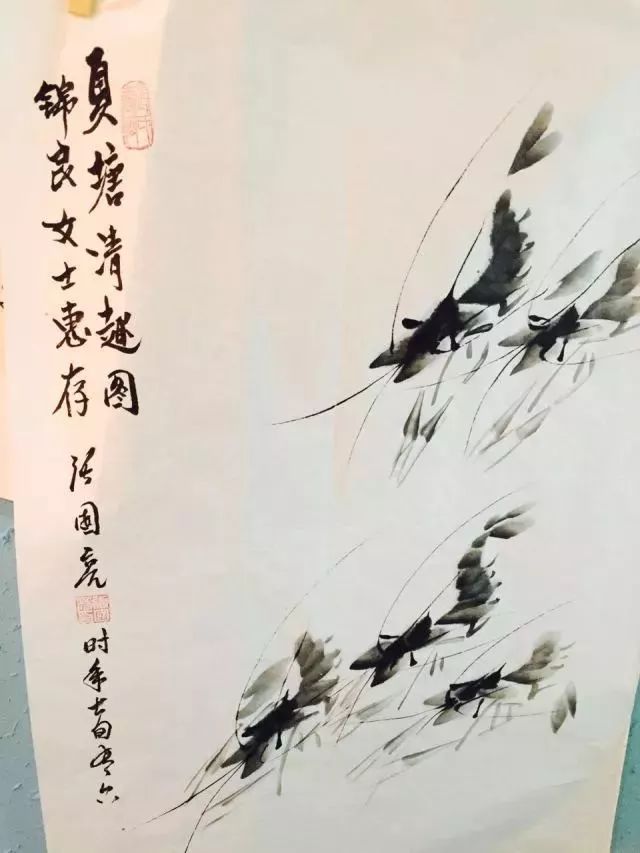 夏塘清趣图
锦良女士惠存
张国亮
时年七旬有六